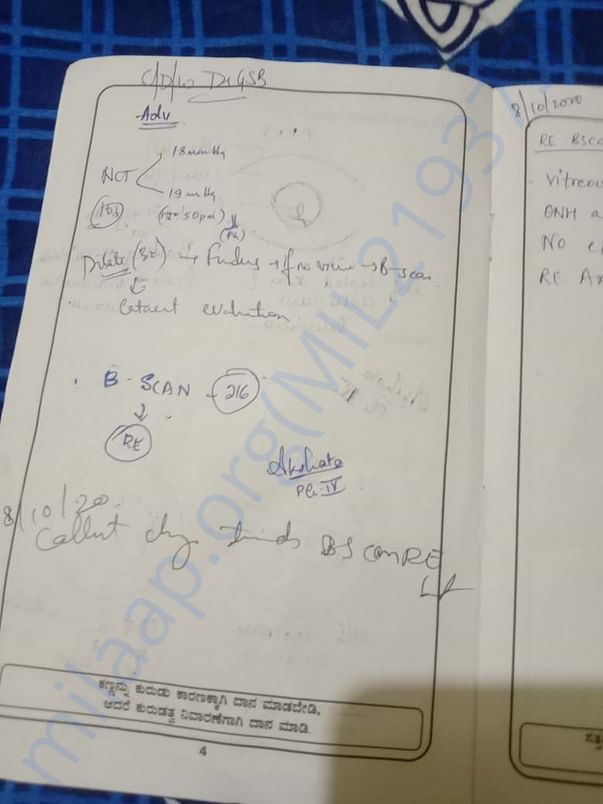 C/D/w Dr GSB
Adv
18 mm Hg
NCT
19 mm Hg
103
(12:50pm)
(PG)
Dilate (BE) → Fundus → If no view → B-scan
Cataract evaluation
B-SCAN - 216
RE
Akshata
PG-IV
8/10/20
Collect chgs towards BScan RE
ಕಣ್ಣನ್ನು ಕುರುಡು ಕಾರಣಕ್ಕಾಗಿ ದಾನ ಮಾಡಬೇಡಿ,
ಆದರೆ ಕುರುಡತ್ವ ನಿವಾರಣೆಗಾಗಿ ದಾನ ಮಾಡಿ.
4
8/10/2020
RE BSca
Vitreou
ONH a
No e
RE Ax
ಸತ್ತ
milaap.org(MIL21937